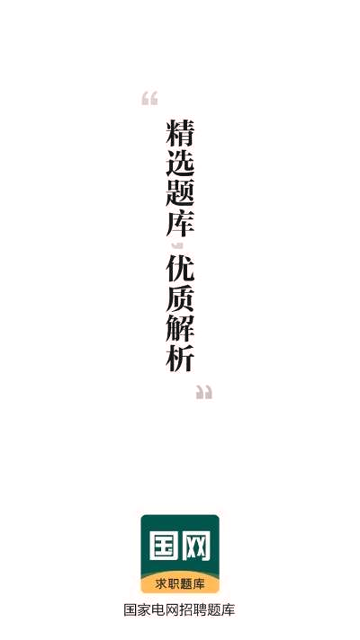 “
精选题库，优质解析
”
国网
求职题库
国家电网招聘题库